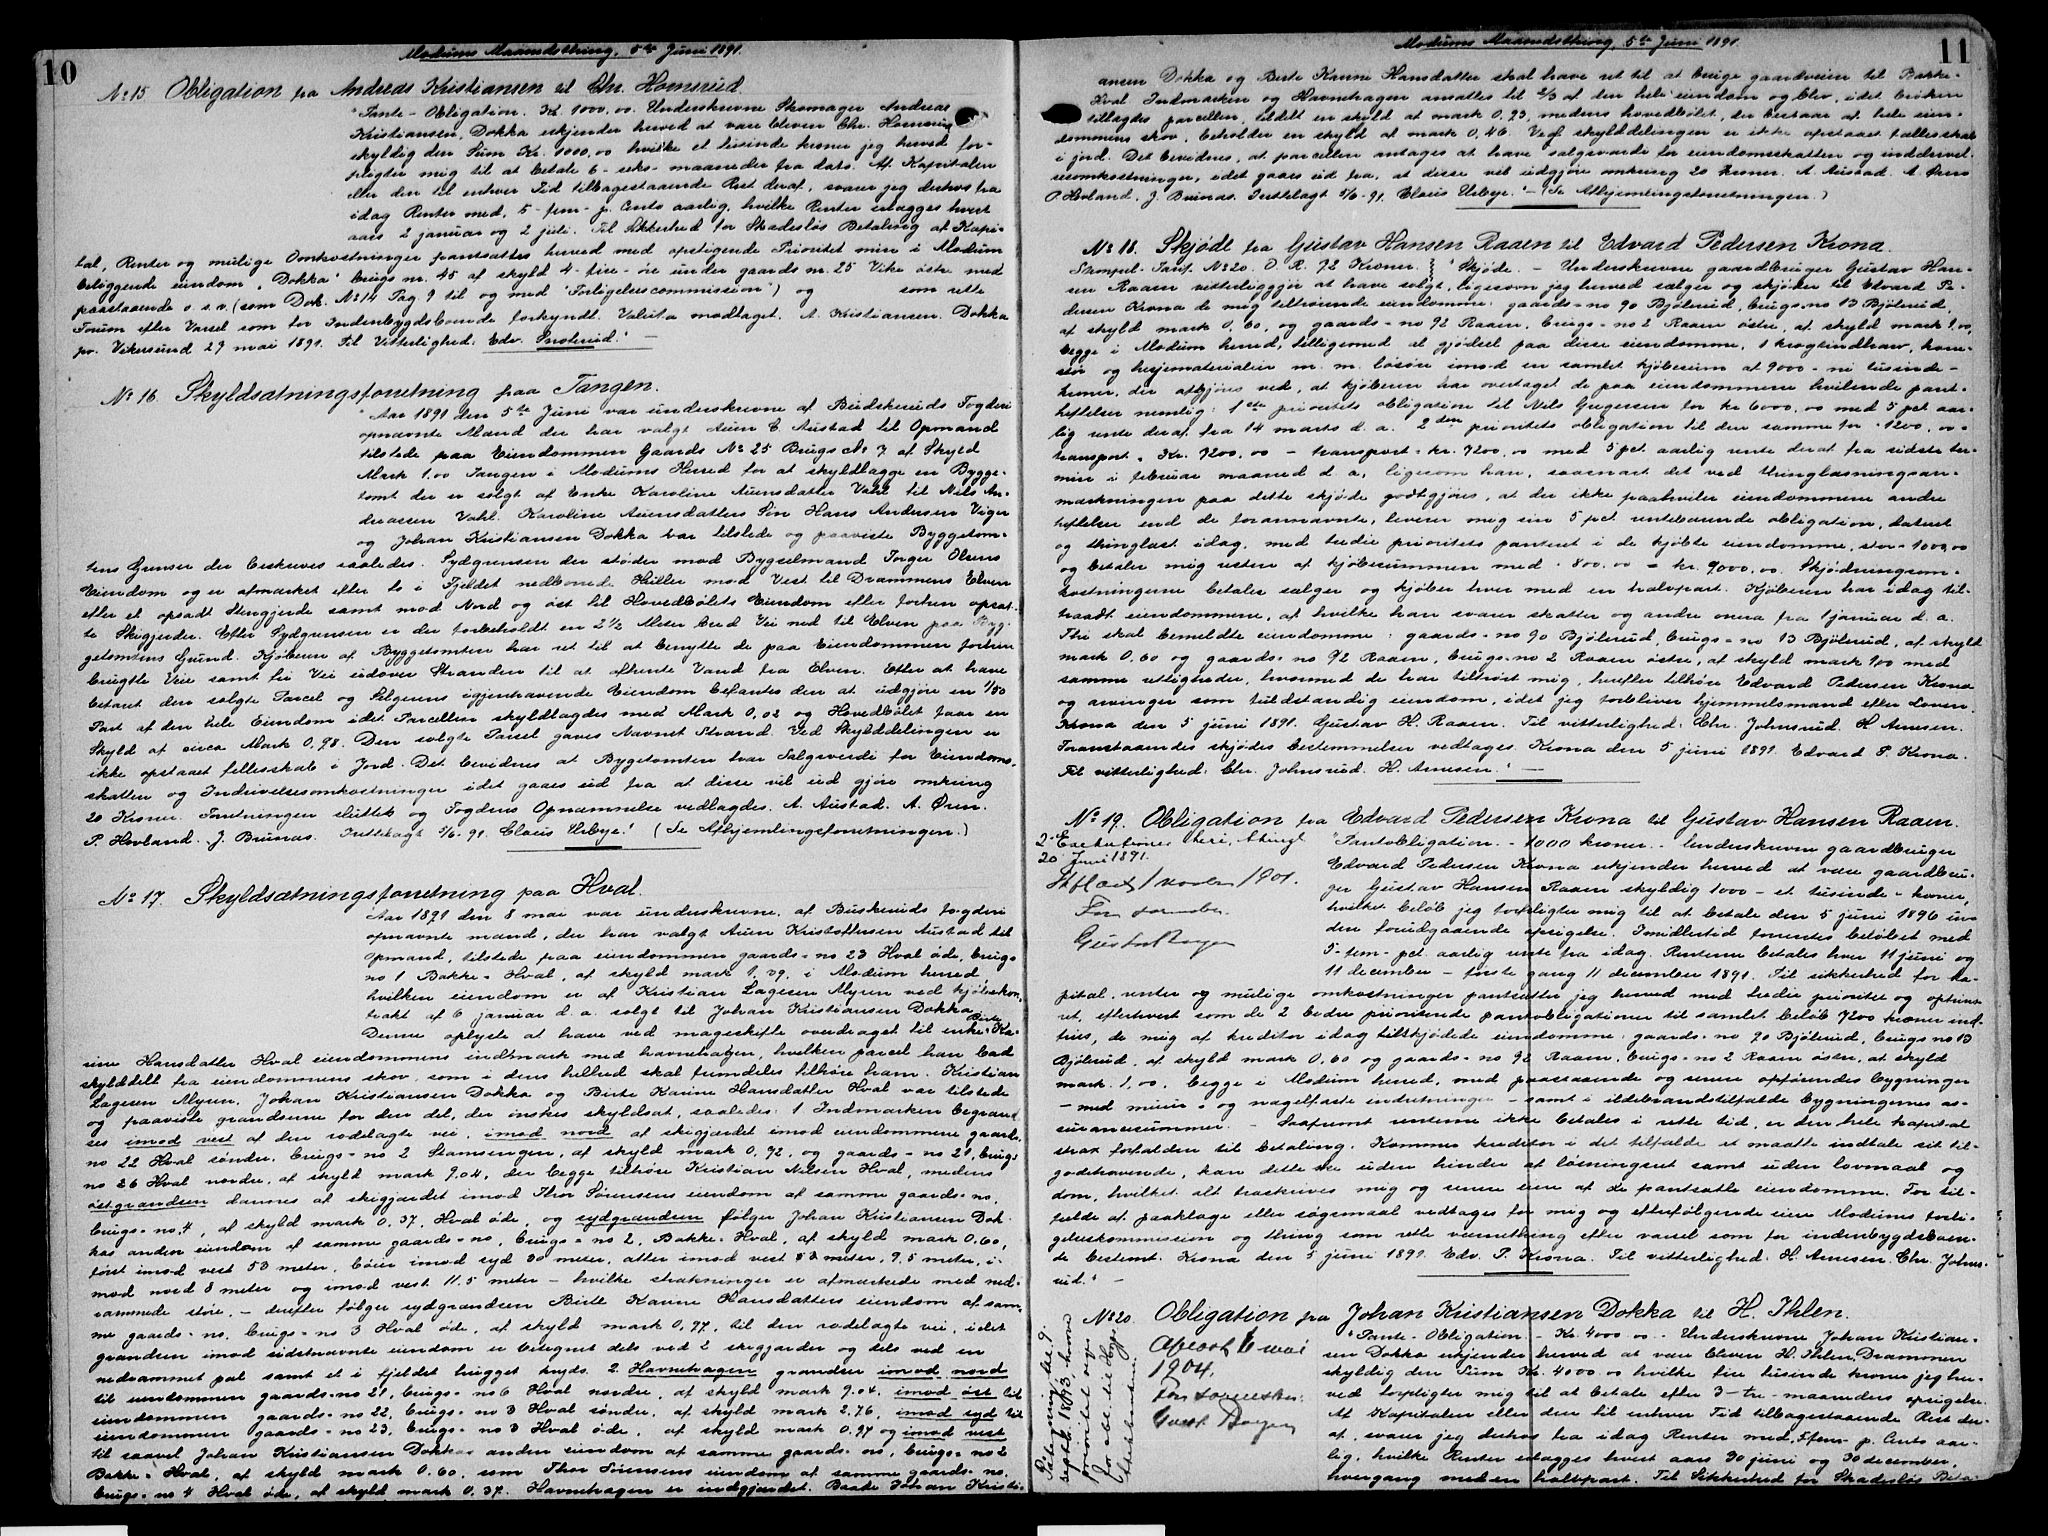 10
Modums Maanedsthing, 5te Juni 1891.
No 15 Obligation fra Andreas Kristiansen til Chr. Hornsrud
"Pante-Obligation. Kr. 1000,00. Underskrevne Skomager Andreas
Kristiansen, Dokka erkjender herved at være Eleven Chr. Hornsrud
skyldig den Sum Kr. 1000,00 hvilke et tusinde kroner jeg herved for-
pligter mig til at betale 6 - seks - maaneder fra dato. Af Kapitalen
eller den til enhver Tid tilbagestaaende Rest deraf, svarer jeg derhos fra
idag Renter med, 5 - fem - p. Cento aarlig, hvilke Renter erlægges hvert
aars 2 januar og 2 juli. Til Sikkerhed for Skadesløs Betaling af Kapi-
tal, Renter og mulige Omkostninger pantsættes herved med opstigende Prioritet min i Modum
beliggende eiendom "Dokka" brugs nr. 45 af skyld 4 - fire - øre under gaards nr. 25 Vike østre med
paastaaende o. s. v. (som Dok. No 14 Pag. 9 til og med "Forligelsescommission") og som rette
Forum efter Varsel som for Indenbygdsboende forkyndt. Valuta modtaget. A. Kristiansen. Dokka
pr. Vikersund 29 mai 1891. Til Vitterlighed: Edv. Snoterud." —
No 16 Skyldsætningsforretning paa Tangen.
"Aar 1891 den 5te Juni var underskrevne af Buskeruds Fogderi
opnævnte Mænd der har valgt Auen C. Austad til Opmand
tilstede paa Eiendommen Gaards No 25 Brugs No 7 af Skyld
Mark 1.00 Tangen i Modums Hered for at skyldlægge en Bygge-
tomt der er solgt af Enke Karoline Auensdatter Vahl til Nils An-
dreassen Vahl. Karoline Auensdatters Søn Hans Andersen Viger
og Johan Kristiansen Dokka var tilstede og paaviste Byggetom-
tens Grenser der beskrives saaledes. Sydgrensen der støder mod Bygselmand Torger Olsens
Eiendom og er afmærket efter to i Fjeldet nedborede Huller mod Vest til Drammens Elven
efter et opsadt Stengjerde samt mod Nord og øst til Hovedbølets Eiendom efter forhen opsat-
te Skigjerder. Efter Sydgrensen er der forbeholdt en 2 1/2 Meter bred Vei ned til Elven paa Byg-
getomtens Grund. Kjøberen af Byggetomten har ret til at benytte de paa Eiendommen forhen
brugte Veie samt fri Vei udover Stranden til at afhente Vand fra Elven. Efter at have
betaret den solgte Parcel og Selgerens igjenhavende Eiendom befantes den at udgjøre en 1/50
Part af den hele Eiendom idet Parcellen skyldlagdes med Mark 0,02 og Hovedbølet faar en
Skyld af circa Mark 0,98. Den solgte Parsel gaves Navnet Strand. Ved Skylddelingen er
ikke opstaaet fellesskab i Jord. Det bevidnes at Bygetomten har Salgsverdi for Eiendoms-
skatten og Inddrivelsesomkostninger idet gaaes ud fra at disse vil ud gjøre omkring
20 Kroner. Forretningen sluttet og Fogdens Opnæmnelse vedlagdes. A. Austad. A. Øren.
P. Hovland. J. Brunæs. Indtelagt 5/6-91. Claus Urbye." (Se Afhjemlingsforretningen.)
No 17. Skyldsætningsforretning paa Hval.
Aar 1891 den 8 mai var underskrevne, af Buskeruds fogderi
opnævnte mænd, der har valgt Auen Kristoffersen Austad til
opmand, tilstede paa eiendommen gaards-no 23 Hval øde, brugs-
no 1 Bakke-Hval, af skyld mark 1.39, i Modum hered,
hvilken eiendom er af Kristian Lagesen Myren ved kjøbekon-
trakt af 6 januar d. a. solgt til Johan Kristiansen Dokka.
Denne oplyste at have ved mageskifte overdraget til enke Birte Ka-
rine Hansdatter Hval eiendommens indmark med havnehagen, hvilken parcel han bad
skylddelt fra eiendommens skov, som i dens helhed skal fremdeles tilhøre ham. Kristian
Lagesen Myren, Johan Kristiansen Dokka og Birte Karine Hansdatter Hval var tilstede
og paaviste grændserne for den del, der ønskes skyldsat, saaledes: 1 Indmarken begrænd-
ses imod vest af den rodelagte vei, imod nord af skigjærdet imod eiendommene gaards-
no 22 Hval søndre, brugs-no 2 Stamsengen, af skyld mark 0,92, og gaards-no 21, brugs-
no 26 Hval nordre, af skyld mark 9.04, der begge tilhøre Kristian Nilsen Hval, medens
østgrændsen dannes af skigjærdet imod Thor Sørensens eiendom af samme gaards-no,
brugs-no 4, af skyld mark 0.37, Hval øde, og sydgrændsen følger Johan Kristiansen Dok-
kas anden eiendom af samme gaards-no, brugs-no 2, Bakke-Hval, af skyld mark 0.60,
først imod vest 53 meter, bøier imod syd 30 meter, atter imod vest 83 meter, 9.5 meter, i-
mod nord 8 meter og imod vest 11.5 meter - hvilke strækninger er afmærkede med ned-
rammede støre, - derefter følger sydgrændsen Birte Karine Hansdatters eiendom af sam-
me gaards-no, brugs-no 3 Hval øde, af skyld mark 0,97, til den rodelagte vei, idet
grændsen imod sidstnævnte eiendom er betegnet dels ved 2 skigjærder og dels ved en
nedrammet pæl samt et i fjeldet hugget kryds. 2. Havnehagen grændser imod nord
til eiendommen gaards-no 21, brugs-no 6 Hval nordre, af skyld mark 9.04, imod øst til
eiendommen gaards-no 22, brugs-no 3 Hval søndre, af skyld mark 2.76, imod syd til
eiendommen gaards-no 23, brugs-no 3 Hval øde, af skyld mark 0.97 og imod vest
til saavel Johan Kristiansen Dokkas anden eiendom af samme gaards-no, brugs-no 2
Bakke-Hval, af skyld mark 0.60, som Thor Sørensens eiendom af samme gaards-no,
brugs-no 4 Hval øde, af skyld mark 0.37. Havnehagen er indgjærdet. Baade Johan Kristi-
11
Modums Maanedsthing, 5te Juni 1891.
ansen Dokka og Birte Karine Hansdatter skal have ret til at bruge gaardsveien til Bakke-
Hval. Indmarken og Havnehagen ansattes til 2/3 af den hele eiendom og blev, idet bruken
tillagdes parcellen, tildelt en skyld af mark 0.93, medens hovedbølet, der bestaar af hele eien-
dommens skov, beholder en skyld af mark 0,46. Ved skylddelingen er ikke opstaaet fællesskab
i jord. Det bevidnes, at parcellen antages at have salgsværdi for eiendomsskatten og inddrivel-
sesomkostninger, idet gaaes ud fra, at disse vil udgjøre omkring 20 kroner. A. Austad. A. Øren
P. Hovland. J. Brunæs. Indtelagt 5/6-91. Claus Urbye." — (Se Afhjemlingsforretningen.)
No 18. Skjøde fra Gustav Hansen Raaen til Edvard Pedersen Krona.
Stempel-Pap. No 20. O. R. 72 Kroner. } "Skjøde. - Underskrevne gaardbruger Gustav Han-
sen Raaen vitterliggjør at have solgt, ligesom jeg herved sælger og skjøder til Edvard Pe-
dersen Krona de mig tilhørende eiendomme: gaards-no 90 Bjølerud, brugs-no 13 Bjølerud,
af skyld mark 0,60, og gaards-no 92 Raaen, brugs-no 2 Raaen østre, af skyld mark 1,00,
begge i Modum hered, tilligemed al gjødsel paa disse eiendomme, 1 krogtindharv, korn-
stør og hesjematerialier m. m. løsøre imod en samlet kjøbesum af 9000 - ni tusinde -
kroner, der afgjøres ved, at kjøberen har overtaget de paa eiendommene hvilende pant-
heftelser nemlig: 1ste prioritets obligation til Nils Gregersen for kr 6000,00 med 5 pct aar-
lig rente deraf fra 14 marts d. a. 2den prioritets obligation til den samme for " 1200,00 -
transport. Kr. 7200,00 - transport - kr. 7200,00 med 5 pct. aarlig rente deraf fra sidste ter-
min i februar maaned d. a., ligesom han, saasnart det ved thinglæsningsan-
mærkningen paa dette skjøde godtgjøres, at der ikke paahviler eiendommene andre
heftelser end de forannævnte, leverer mig sin 5 pct. rentebærende obligation, dateret
og thinglæst idag, med tredie prioritets panteret i de kjøbte eiendomme, stor - 1000,00
og betaler mig resten af kjøbesummen med " 800,00 = kr. 9000,00. Skjødningsom-
kostningerne betaler sælger og kjøber hver med en halvpart. Kjøberen har idag til-
traadt eiendommene, af hvilke han svarer skatter og andre onera fra 1 januar d. a.
Thi skal bemeldte eiendomme: gaards-no 90 Bjølerud, brugs-no 13 Bjølerud, af skyld
mark 0.60 og gaards-no 92 Raaen, brugs-no 2 Raaen østre, af skyld mark 1,00 med
samme rettigheder, hvormed de har tilhørt mig, herefter tilhøre Edvard Pedersen Krona
og arvinger som fuldstændig eiendom, idet jeg forbliver hjemmelsmand efter Loven.
Krona den 5 juni 1891. Gustav H. Raaen. Til vitterlighed: Chr. Johnsrud. H. Arnesen.
Foranstaaendes skjødes bestemmelser vedtages. Krona den 5 juni 1891. Edvard P. Krona.
Til vitterlighed: Chr. Johnsrud. H. Arnesen." —
No 19. Obligation fra Edvard Pedersen Krona til Gustav Hansen Raaen.
20 Juni 1891.
"Pantobligation. - 1000 kroner. - Underskrevne gaardbruger
Edvard Pedersen Krona erkjender herved at være gaardbru-
ger Gustav Hansen Raaen skyldig 1000 - et tusinde - kroner,
hvilket beløb jeg forpligter mig til at betale den 5 juni 1896 uden
den forudgaaende opsigelse. Imidlertid forrentes beløbet med
5 - fem - pct. aarlig rente fra idag. Renterne betales hver 11 juni og
11 december - første gang 11 december 1891. Til sikkerhed for ka-
pital, renter og mulige omkostninger pantsætter jeg herved med tredie prioritet og oprins-
ret, efterhvert som de 2 bedre prioriterede pantobligationer til samlet beløb 7200 kroner ind-
fries, de mig af kreditor idag tilskjødede eiendomme: gaards-no 90 Bjølerud, brugs no 13
Bjølerud, af skyld mark 0,60 og gaards-no 92 Raaen, brugs-no 2 Raaen østre, af skyld
mark 1,00, begge i Modum hered, med paastaaende og senere opførendes bygninger
- med mur- og nagelfaste indretninger - samt i ildebrandstilfælde bygningernes as-
surancesummer. - Saafremt renterne ikke betales i rette tid, er den hele kapital
strax forfalden til betaling. Kommer kreditor i det tilfælde at maatte indtale sit til-
godehavende, kan dette ske uden hinder af løsningsret samt uden lovmaal og
dom, hvilket alt beskrives mig og senere eier af de pantsatte eiendomme. For til-
fælde af paaklage eller søgsmaal vedtages for mig og efterfølgende eiere Modums forli-
gelseskommission og thing som rette vernething efter varsel som for indenbygdsboen-
de bestemt. Krona den 5 juni 1891. Edv. P. Krona. Til vitterlighed: H. Arnesen. Chr. Johns-
rud." —
No 20. Obligation fra Johan Kristiansen Dokka til H. Ihlen.
1904.
"Pante-Obligation - Kr. 4000,00. - Underskrevne Johan Kristian-
sen Dokka erkjender herved at være Eleven H. Ihlen, Drammen
skyldig den Sum Kr. 4000,00 hvilke fire tusinde kroner jeg her-
ved forpligter mig til at betale efter 3 - tre - maaneders opsigelse.
Af Kapitalen eller den til enhver Tid tilbagestaaende Rest der-
af, svarer jeg derhos fra idag Renter med, 5 fem - p. Cento aar-
lig, hvilke Renter erlægges hvert aars 30 juni og 30 december,
hvergang med en halvpart. Til Sikkerhed for Skadesløs Beta-